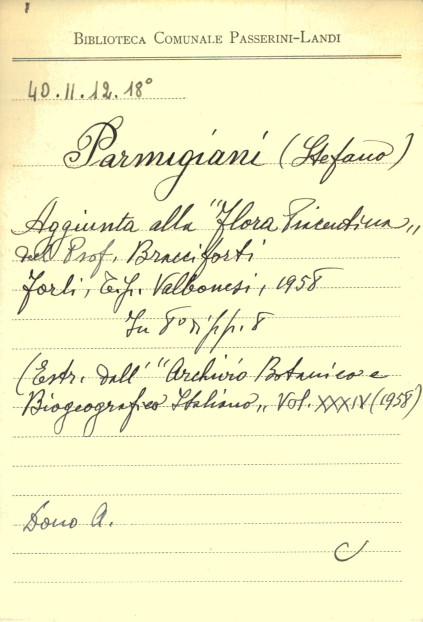 BIBLIOTECA COMUNALE PASSERINI-LANDI
40.II.12.18°
Parmigiani (Stefano)
Aggiunta alla "Flora Piacentina„
del Prof. Bracciforti
Forlì, Tip. Valbonesi, 1958
In 8° di pp. 8
(Estr. dall' "Archivio Botanico e
Biogeografico Italiano„ Vol. XXXIV (1958)
Dono A.